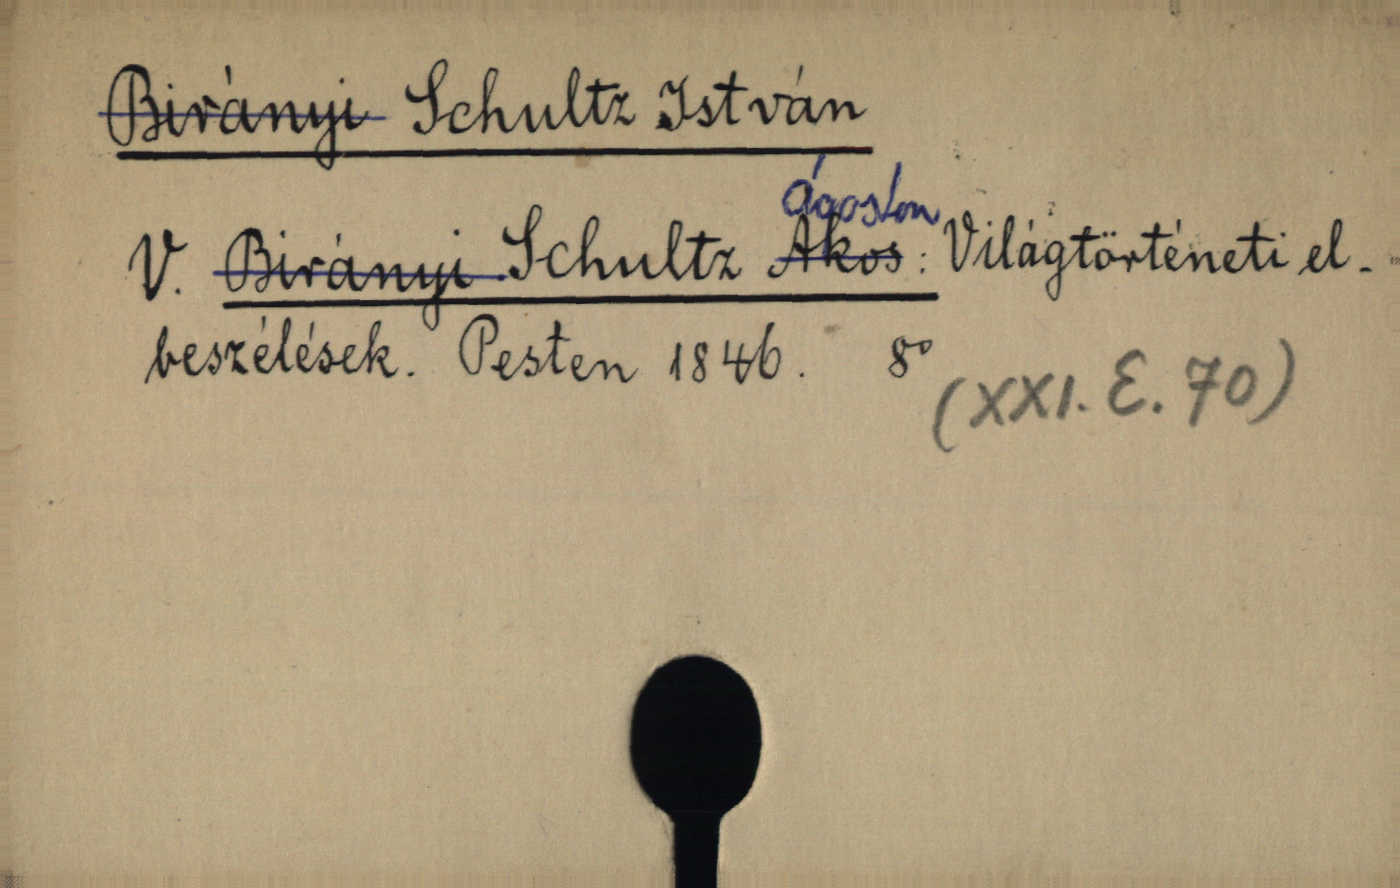 Birányi Schultz István
Ágoston
V. Birányi Schultz Ákos: Világtörténeti el-
beszélések. Pesten 1846. 8°
(XXI. E. 70)